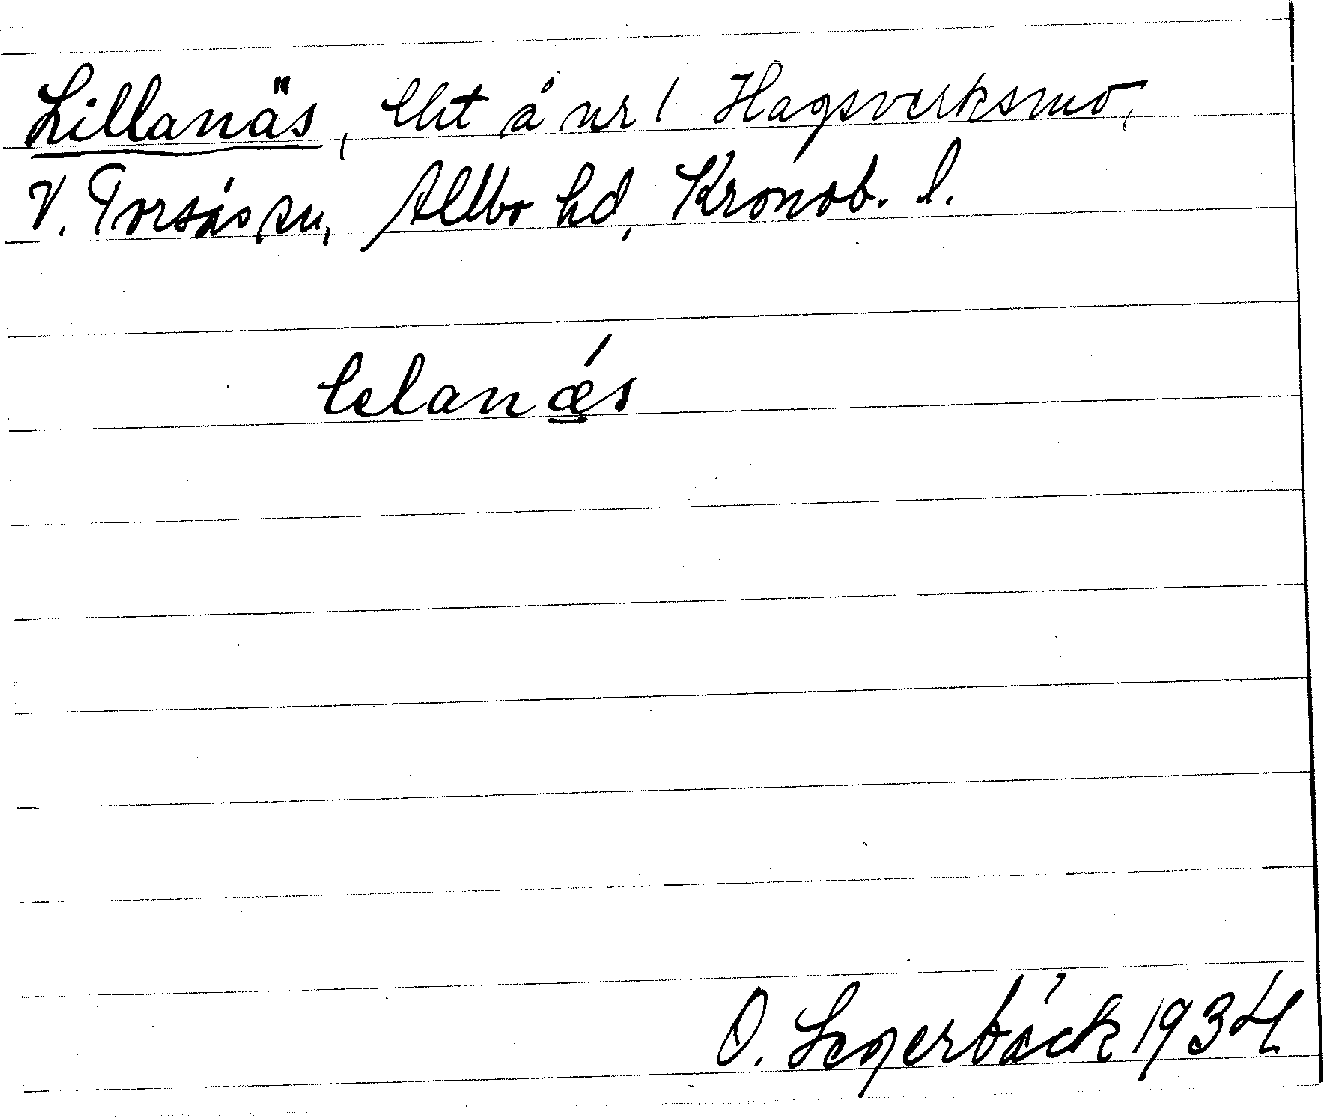 Lillanäs, lht å nr 1 Hagsverksmo,
V. Torsås sn, Allbo hd, Kronob. l.
lelanæ´s
O. Legerbäck 1934